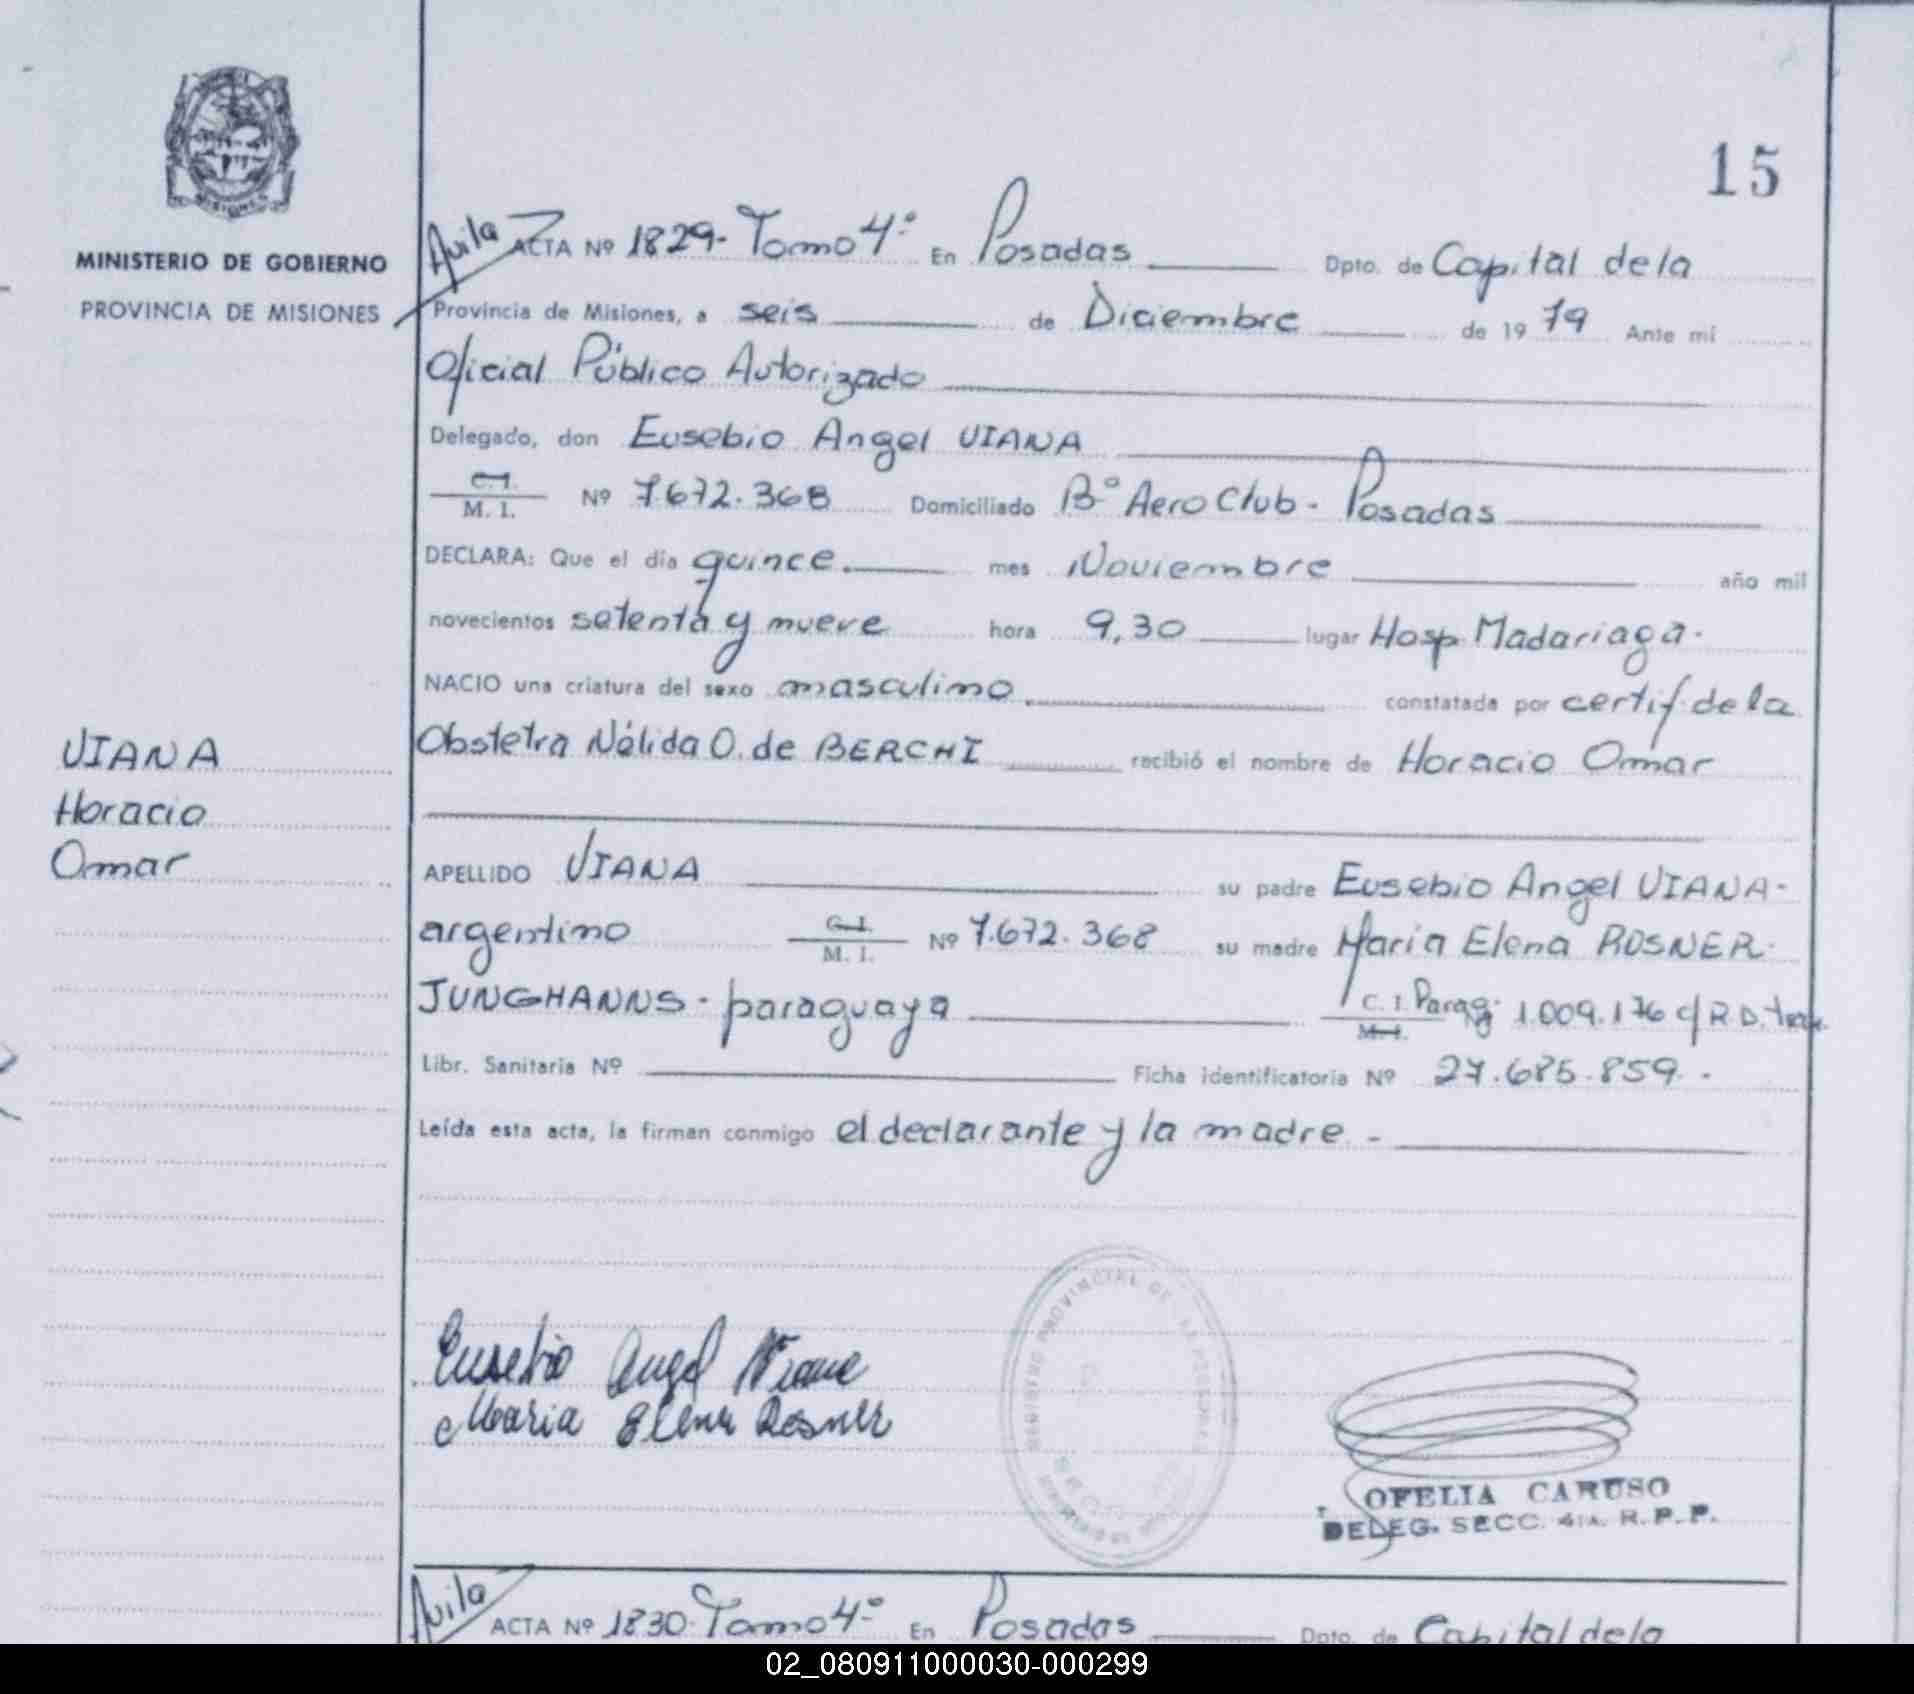 15
MISIONES
MINISTERIO DE GOBIERNO
PROVINCIA DE MISIONES
Avila ACTA Nº 1829- Tomo 4º En Posadas Dpto. de Capital de la
Provincia de Misiones, a seis de Diciembre de 19 79 Ante mi
Oficial Público Autorizado
Delegado, don Eusebio Angel VIANA
C.I.
M. I. Nº 7.672.368 Domiciliado Bº Aero Club - Posadas
DECLARA: Que el día quince mes Noviembre año mil
novecientos setenta y nueve hora 9,30 lugar Hosp Madariaga.
NACIO una criatura del sexo masculino constatada por certif de la
Obstetra Nélida O. de BERCHI recibió el nombre de Horacio Omar
VIANA
Horacio
Omar
APELLIDO VIANA su padre Eusebio Angel VIANA-
argentino C.I.
M. I. Nº 7.672.368 su madre Maria Elena ROSNER
JUNGHANNS - paraguaya C. I. Parag. 1.009.176 c/ R.D.
M.I.
Libr. Sanitaria Nº Ficha identificatoria Nº 27.685.859.
Leída esta acta, la firman conmigo el declarante y la madre -
Eusebio Angel Viana
Maria Elena Rosner
REGISTRO PROVINCIAL DE LAS PERSONAS
OFELIA CARUSO
DELEG. SECC. 4ta. R. P. P.
Avila ACTA Nº 1830- Tomo 4º En Posadas Dpto. de Capital de la
02_080911000030-000299